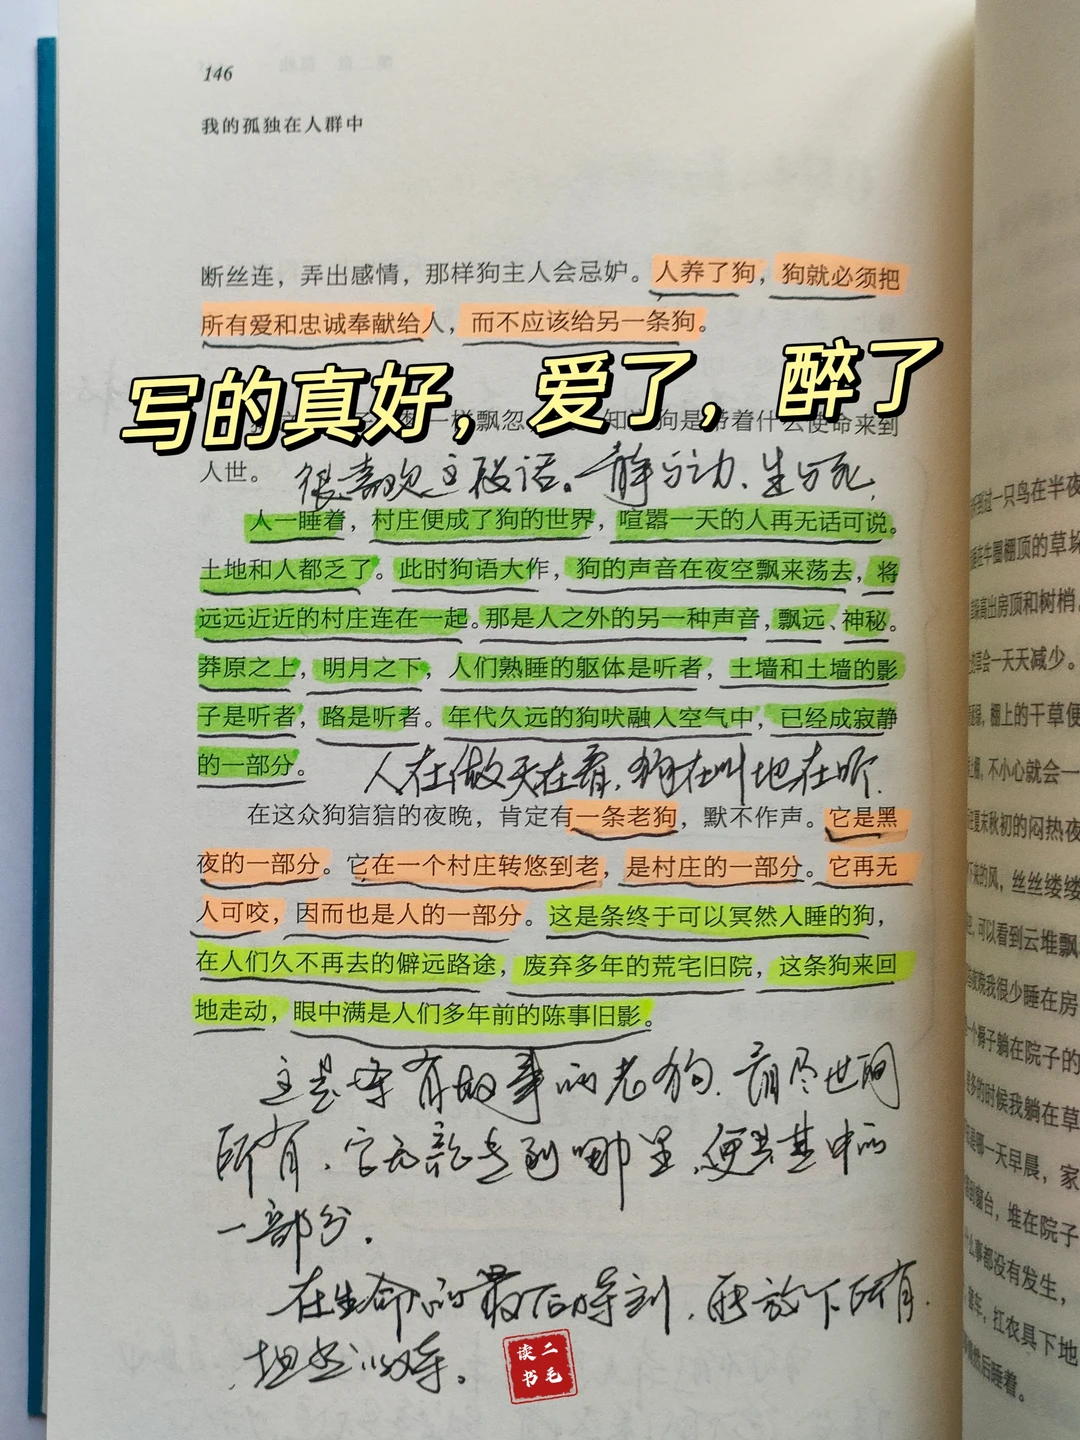 146
我的孤独在人群中
断丝连，弄出感情，那样狗主人会忌妒。人养了狗，狗就必须把
所有爱和忠诚奉献给人，而不应该给另一条狗。
写的真好，爱了，醉了
一样飘忽 知道狗是带着什么使命来到
人世。
很喜欢这段话。静与动、生与死，
人一睡着，村庄便成了狗的世界，喧嚣一天的人再无话可说。
土地和人都乏了。此时狗语大作，狗的声音在夜空飘来荡去，将
远远近近的村庄连在一起。那是人之外的另一种声音，飘远、神秘。
莽原之上，明月之下，人们熟睡的躯体是听者，土墙和土墙的影
子是听者，路是听者。年代久远的狗吠融入空气中，已经成寂静
的一部分。
人在做天在看，狗在叫地在听
在这众狗狺狺的夜晚，肯定有一条老狗，默不作声。它是黑
夜的一部分。它在一个村庄转悠到老，是村庄的一部分。它再无
人可咬，因而也是人的一部分。这是条终于可以冥然入睡的狗，
在人们久不再去的僻远路途，废弃多年的荒宅旧院，这条狗来回
地走动，眼中满是人们多年前的陈事旧影。
这是一条有故事的老狗，看尽世间
所有，它无论走到哪里，便其中的
一部分。
在生命的最后时刻，放下所有，
坦然
二毛读书
到过一只鸟在半夜
在牛圈棚顶的草垛
高出房顶和树梢
会一天天减少。
棚上的干草便
不小心就会一
夏末秋初的闷热夜
来的风，丝丝缕缕
可以看到云堆飘
夜晚我很少睡在房
一个褥子躺在院子的
多的时候我躺在草
是哪一天早晨，家
窗台，堆在院子
什么事都没有发生，
扛农具下地
然后睡着。